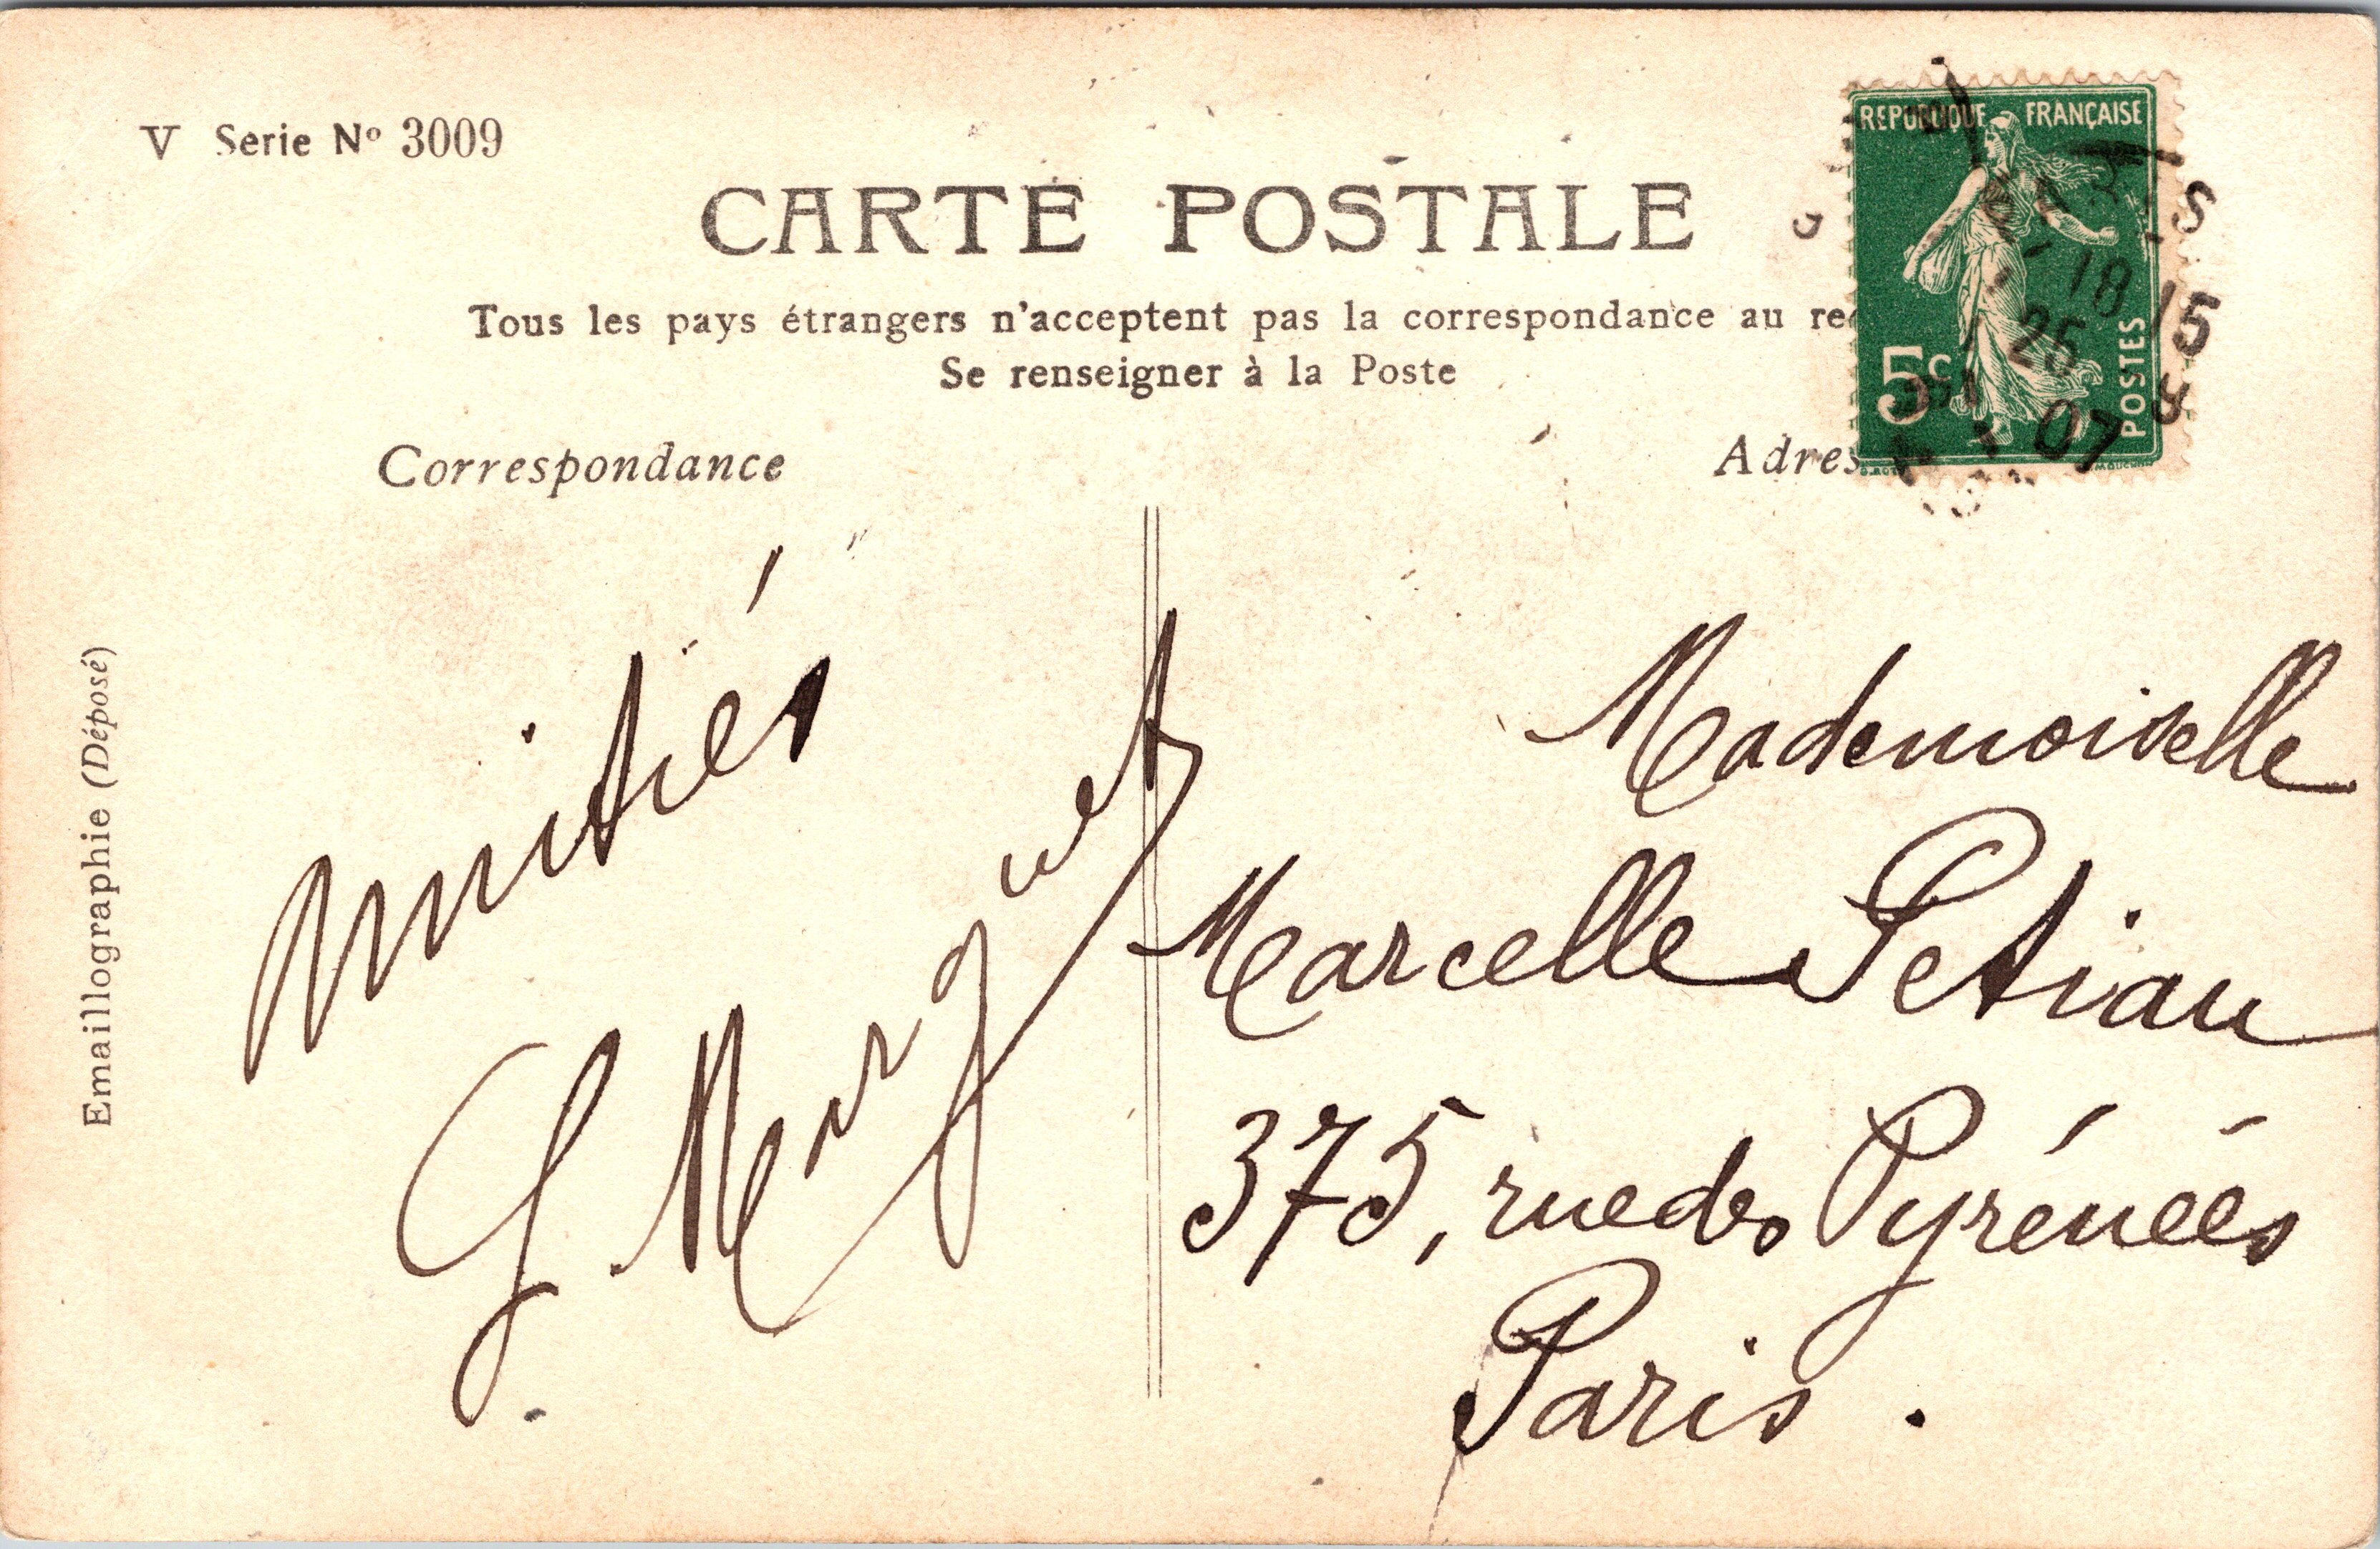 V Serie Nº 3009
CARTE POSTALE
Tous les pays étrangers n'acceptent pas la correspondance au re
Se renseigner à la Poste
Correspondance
Adres
REPUBLIQUE FRANÇAISE
5c
POSTES
18 15
25
07
Emaillographie (Déposé)
Amitiés
Mademoiselle
Marcelle Petiau
375, rue des Pyrénées
Paris.